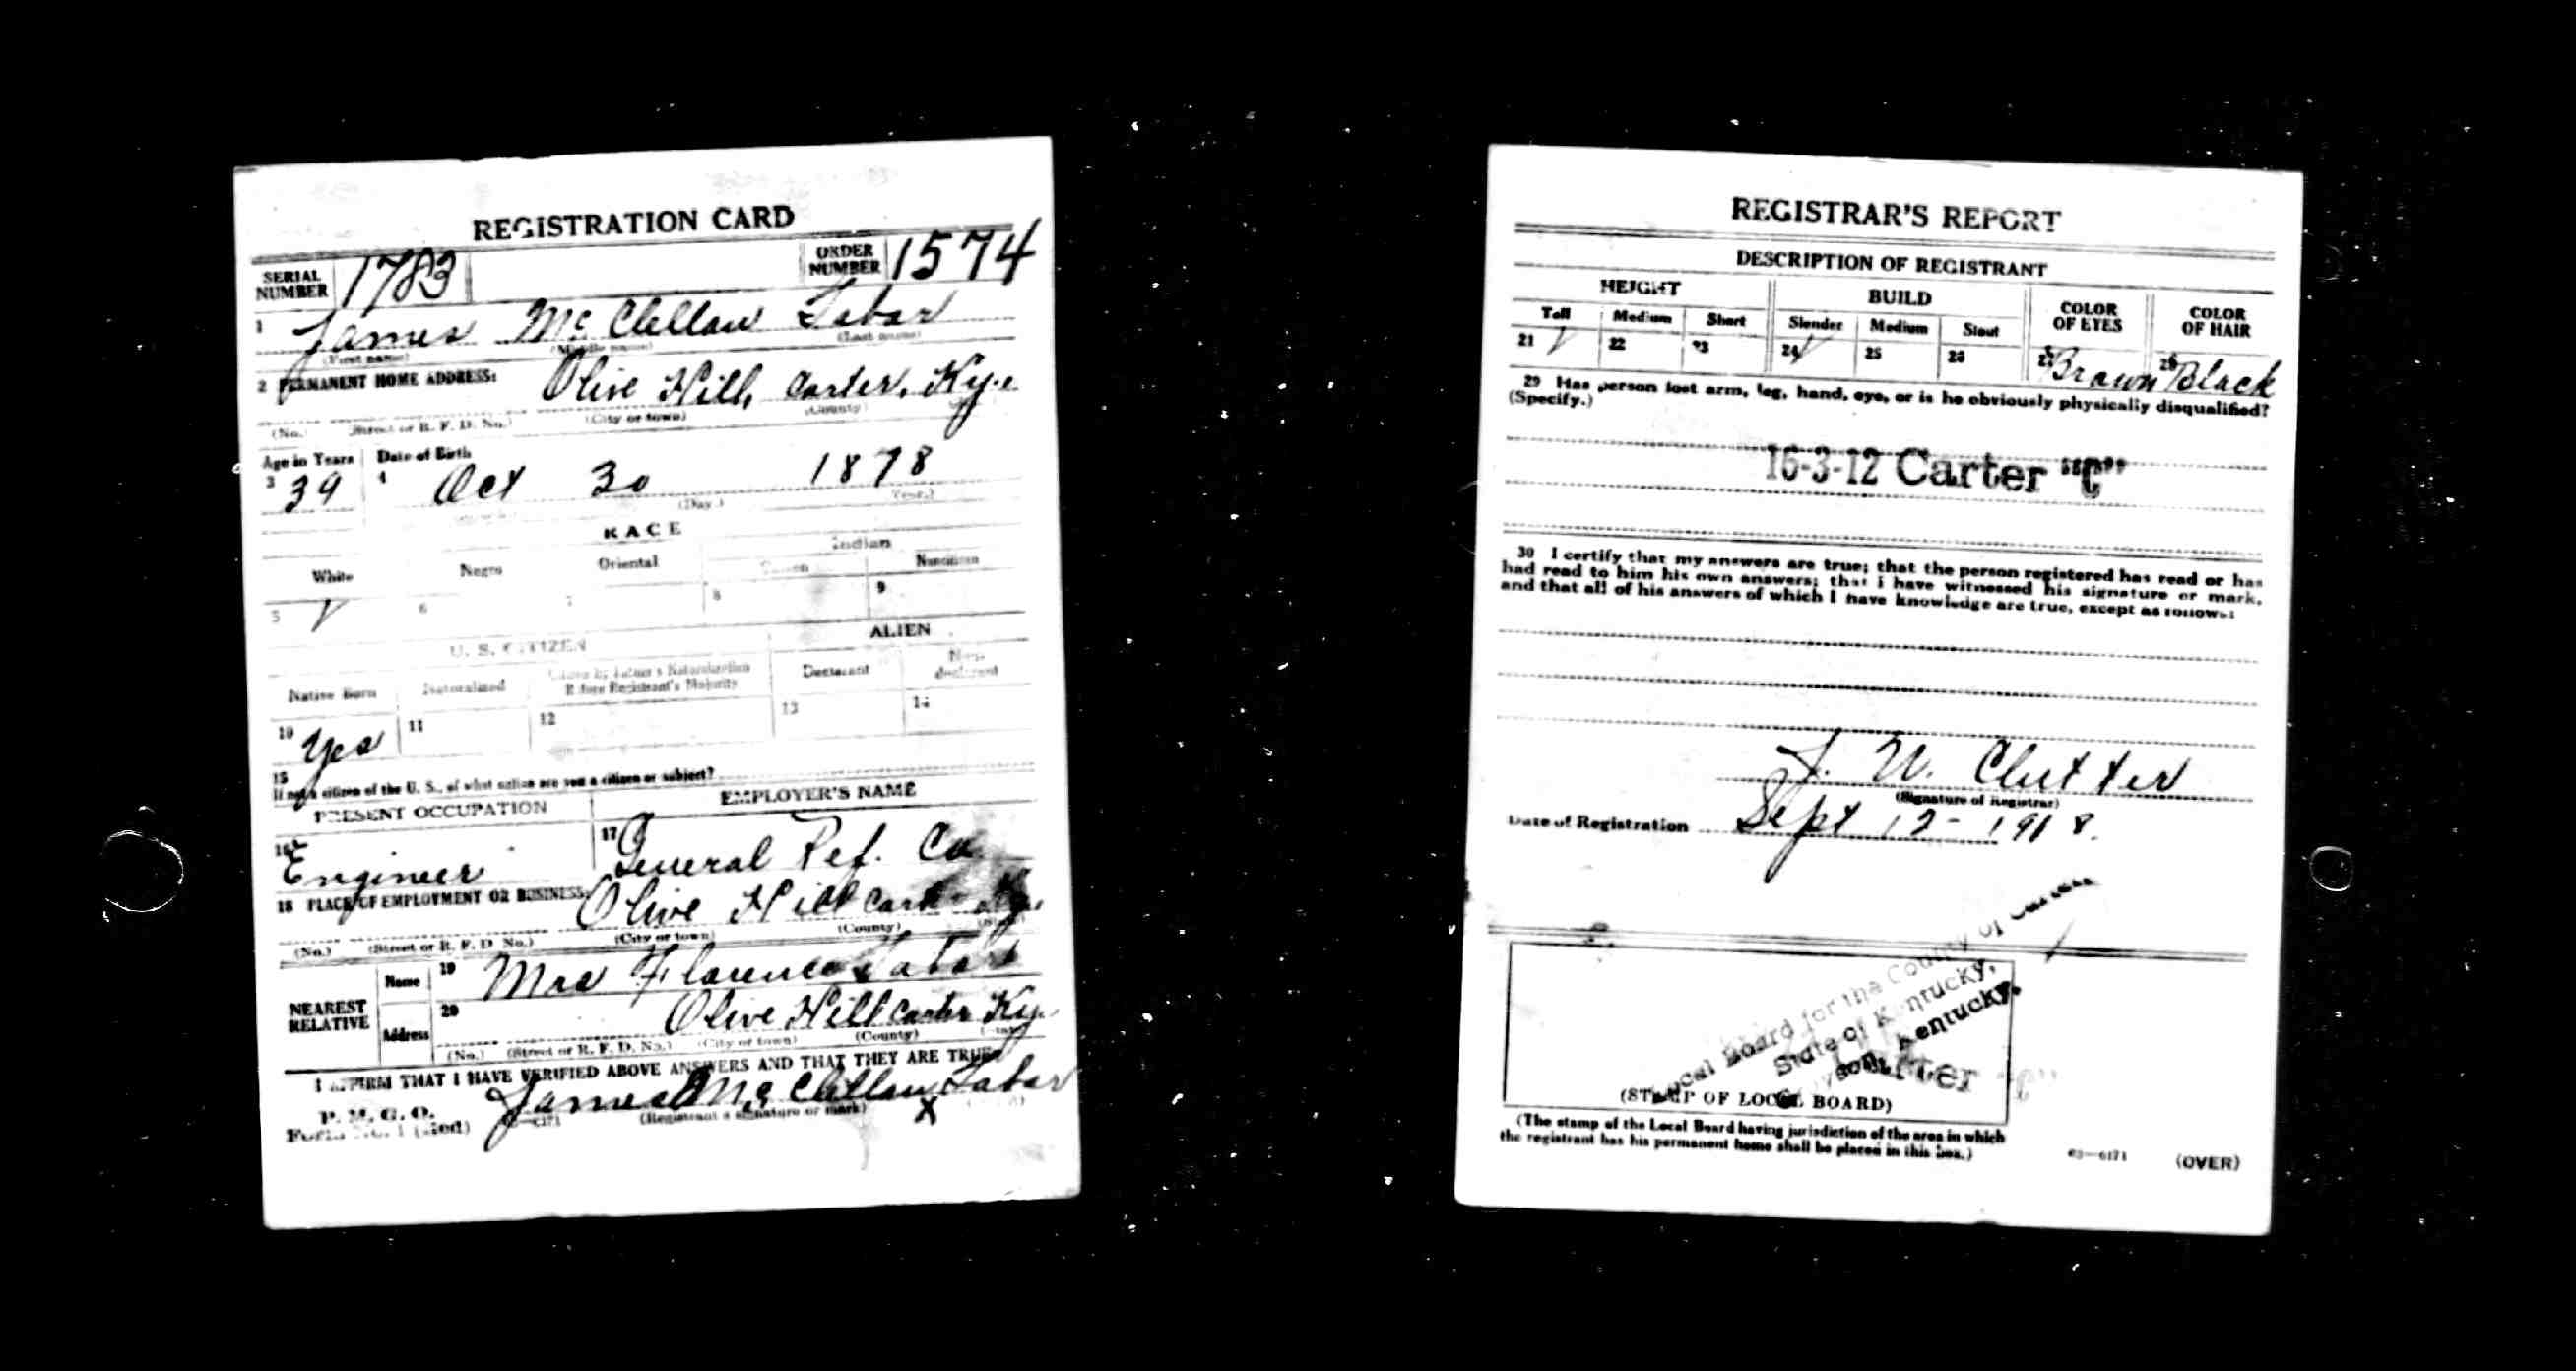 REGISTRATION CARD
SERIAL NUMBER 1783 ORDER NUMBER 1574
1 James McClellan Tabor
(First name) (Middle name) (Last name)
2 PERMANENT HOME ADDRESS: Olive Hill, Carter, Ky.
(No.) (Street or R. F. D. No.) (City or town) (County)
Age in Years Date of Birth
3 39 4 Oct 30 1878
(Day.) (Year.)
RACE
White Negro Oriental Indian
Citizen Noncitizen
5 √ 6 7 8 9
U. S. CITIZEN ALIEN
Native Born Naturalized Citizen by Father's Naturalization Before Registrant's Majority Declarant Non-declarant
10 Yes 11 12 13 14
15 If not a citizen of the U. S., of what nation are you a citizen or subject?
PRESENT OCCUPATION EMPLOYER'S NAME
16 Engineer 17 General Ref. Co
18 PLACE OF EMPLOYMENT OR BUSINESS: Olive Hill Carter Ky.
(No.) (Street or R. F. D No.) (City or town) (County) (State)
NEAREST RELATIVE Name 19 Mrs Florence
Address 20 Olive Hill Carter Ky.
(No.) (Street or R. F. D. No.) (City or town) (County) (State)
I AFFIRM THAT I HAVE VERIFIED ABOVE ANSWERS AND THAT THEY ARE TRUE
P. M. G. O.
Form No. 1 (Red) James McClellan Tabor
(Registrant's signature or mark) X
REGISTRAR'S REPORT
DESCRIPTION OF REGISTRANT
HEIGHT BUILD COLOR OF EYES COLOR OF HAIR
Tall Medium Short Slender Medium Stout
21 √ 22 23 24 √ 25 26 27 Brown 28 Black
29 Has person lost arm, leg, hand, eye, or is he obviously physically disqualified?
(Specify.)
16-3-12 Carter "C"
30 I certify that my answers are true; that the person registered has read or has
had read to him his own answers; that I have witnessed his signature or mark,
and that all of his answers of which I have knowledge are true, except as follows:
Clutter
(Signature of Registrar)
Date of Registration Sept 12- 1918.
Local Board for the County of Carter
State of Kentucky,
Kentucky.
Carter "C"
(STAMP OF LOCAL BOARD)
(The stamp of the Local Board having jurisdiction of the area in which
the registrant has his permanent home shall be placed in this box.)
03—6171 (OVER)